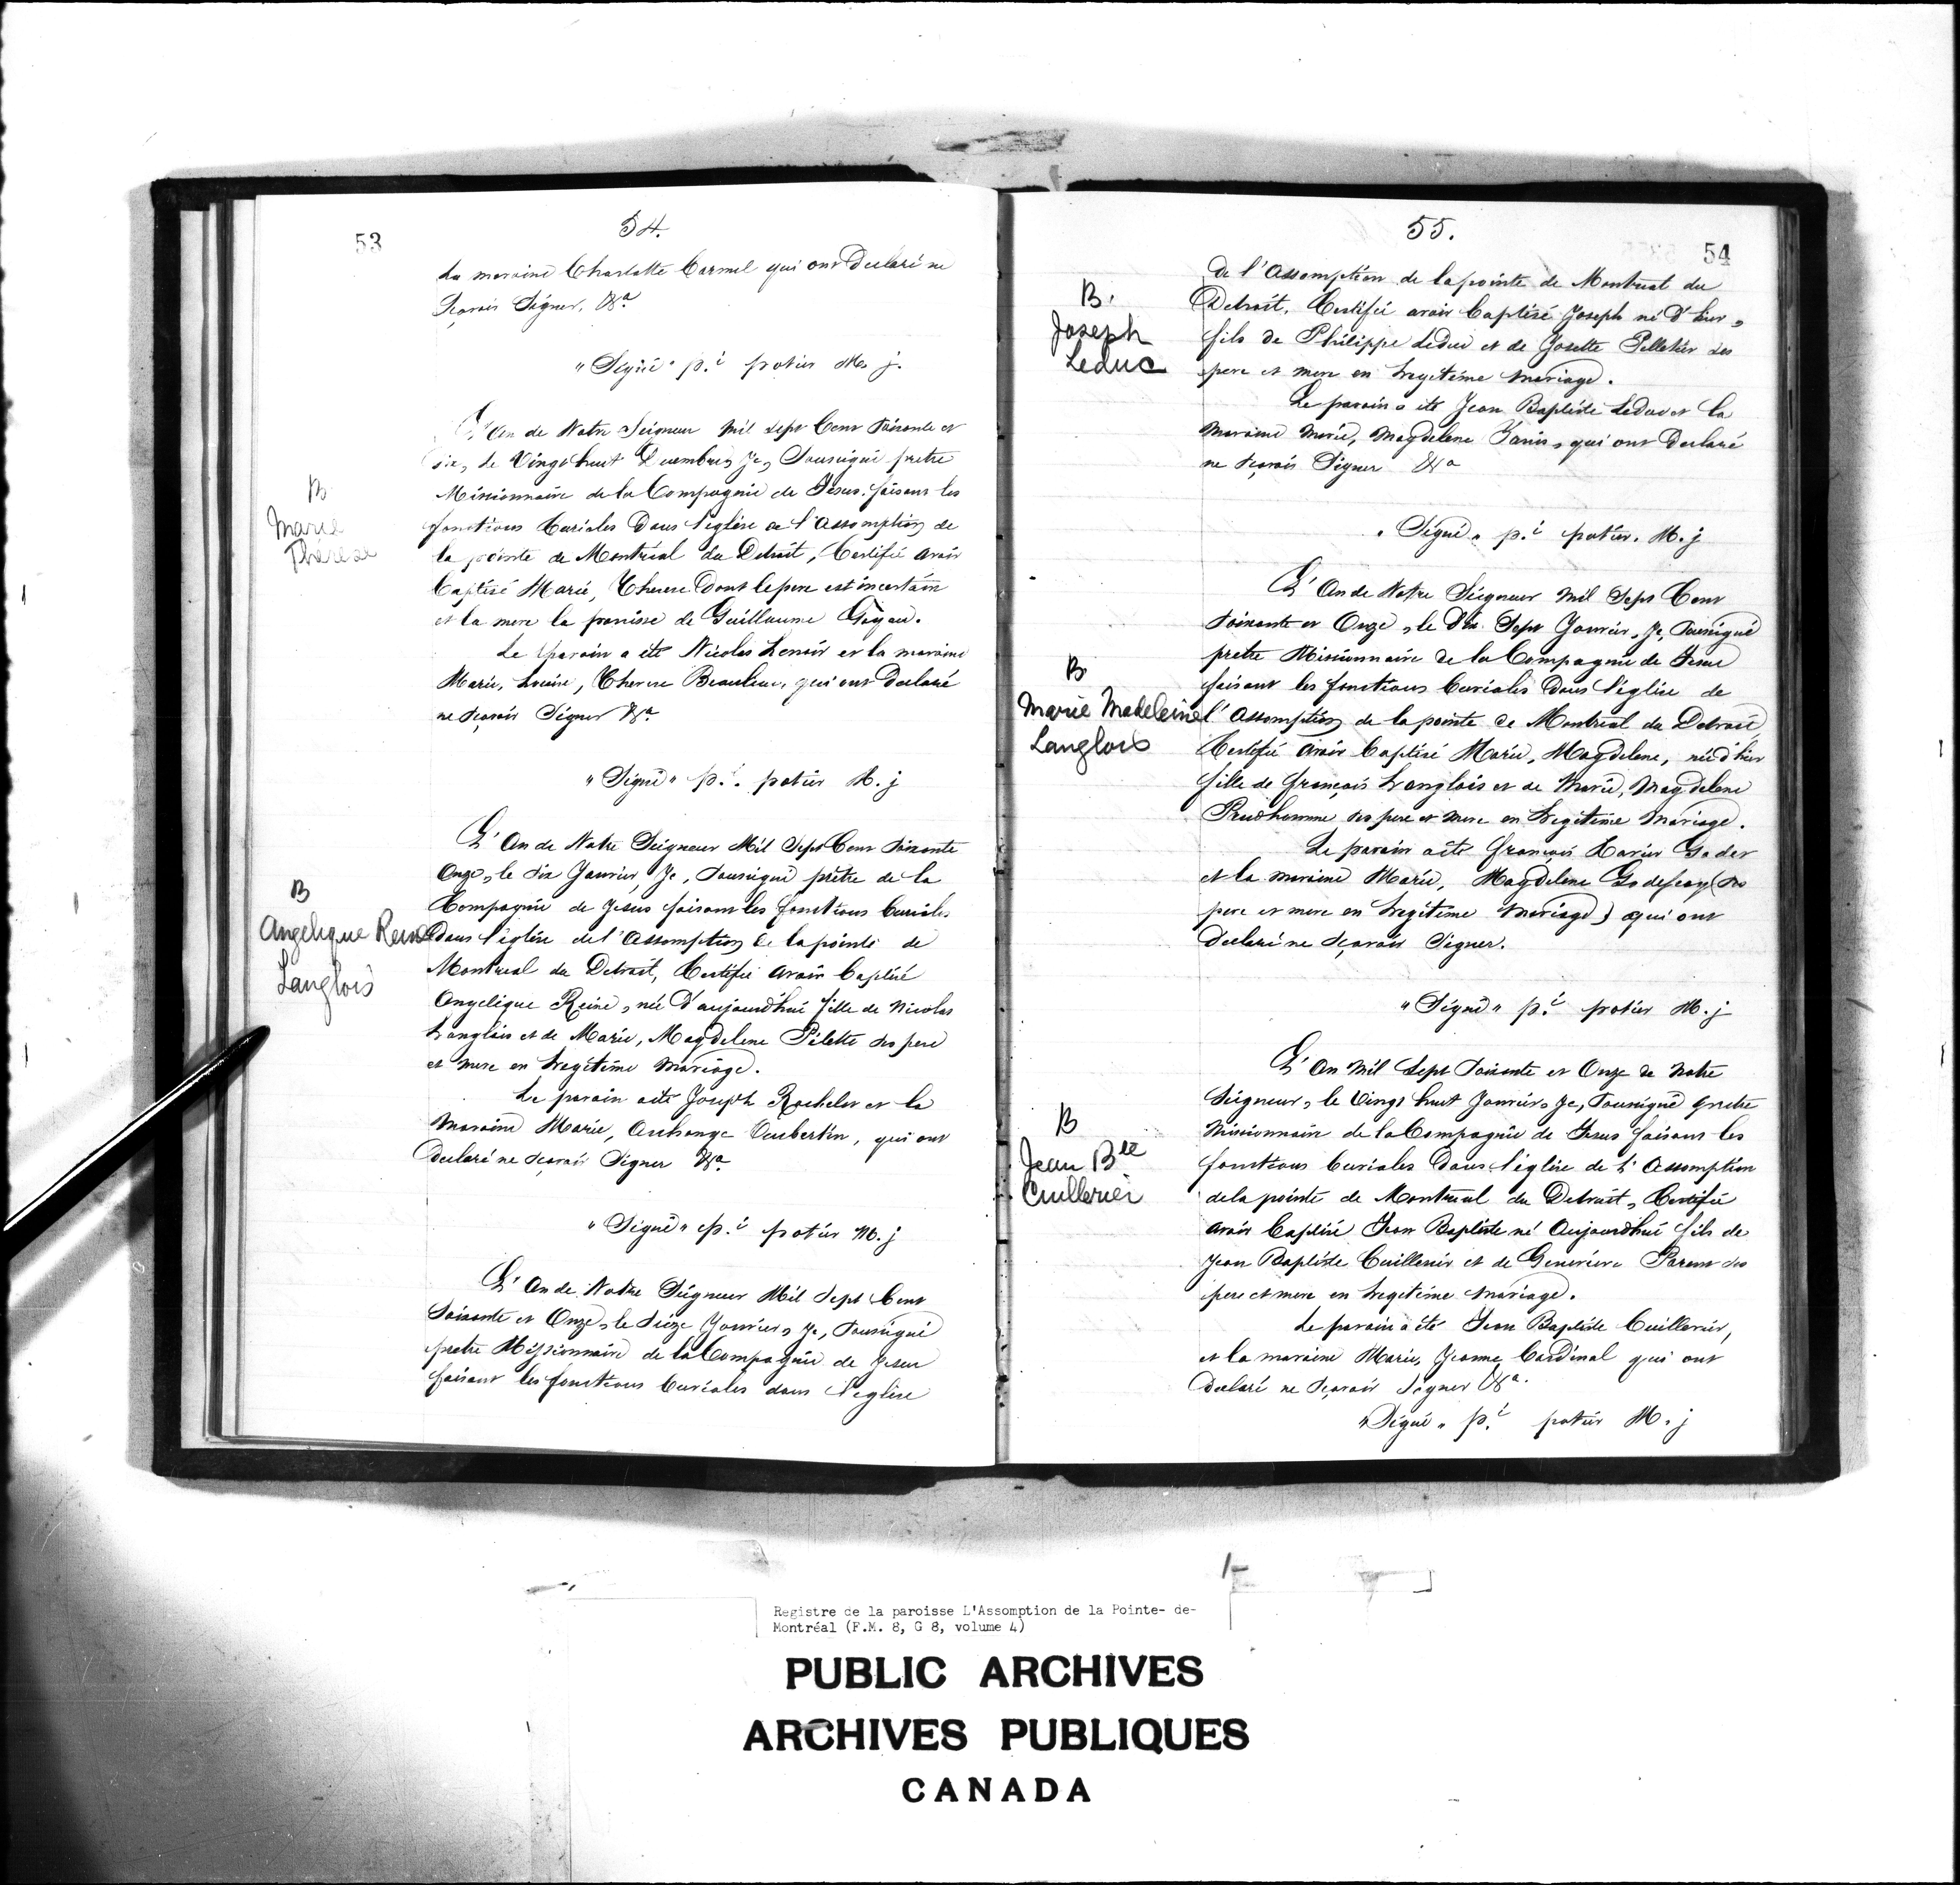 53
54.
La maraine Charlotte Carmel qui ont Declaré ne
Sçavoir Signer. &a
"Signé" p.i potier M. j.
L'An de Notre Seigneur Mil sept Cent Soixante et
dix, le Vingt huit Decembre, Je, Soussigné pretre
Missionnaire de la Compagnie de Jesus faisant les
fonctions Curiales Dans l'eglise de l'Assomption de
la pointe de Montréal du Detroit, Certifie avoir
B
Marie
Thérèse
Baptisé Marie, Therese Dont le pere est incertain
et la mere la panisse de Guillaume Goyau.
Le parain a été Nicolas Lenoir et la maraine
Marie, Louise, Therese Beaulieu, qui ont declaré
ne sçavoir Signer &a
"Signé" p.i. potier M. j
L'An de Notre Seigneur Mil Sept Cent Soixante
Onze, le dix Janvier, Je, Soussigné prêtre de la
Compagnie de Jesus faisant les fonctions Curiales
B
Angelique Reine
Langlois
Dans l'église de l'Assomption de la pointe de
Montreal du Detroit, Certifie avoir Baptisé
Angelique Reine, née D'aujourdhui fille de Nicolas
Langlois et de Marie, Magdelene Pilette ses pere
et mere en Legitime Mariage.
Le parain a été Joseph Rocheler et la
Maraine Marie, Archange Vaubertin, qui ont
declaré ne sçavoir Signer &a
"Signé" p.i potier M. j
L'An de Notre Seigneur Mil Sept Cent
Soixante et Onze, le Seize Janvier, Je, Soussigné
pretre Missionnaire de la Compagnie de Jesus
faisant les fonctions Curiales dans l'eglise
55.
54
De l'Assomption de la pointe de Montreal du
B.
Joseph
Leduc
Detroit, Certifie avoir Baptisé Joseph né D'hier,
fils de Philippe Leduc et de Josette Pelletier ses
pere et mere en Legitime Mariage.
Le parain a été Jean Baptiste Leduc et la
Maraine Marie, Magdelene Janis, qui ont Declaré
ne sçavoir Signer &a
"Signé" p.i potier. M. j
L'An de Notre Seigneur Mil Sept Cent
Soixante et Onze, le dix Sept Janvier, Je, Soussigné
pretre Missionnaire de la Compagnie de Jesus
faisant les fonctions Curiales Dans l'église de
B
Marie Madeleine
Langlois
l'Assomption de la pointe de Montreal du Detroit,
Certifie avoir Baptisé Marie, Magdelene, née d'hier
fille de françois Langlois et de Marie, Magdelene
Prudhomme ses pere et mere en Legitime Mariage.
Le parain a été François Xavier Gader
et la maraine Marie, Magdelene Godefroy (ses
pere et mere en Legitime Mariage) qui ont
Declaré ne sçavoir Signer.
"Signé" p.i potier M. j
L'An Mil Sept Soixante et Onze de Notre
Seigneur, le Vingt huit Janvier, Je, Soussigné pretre
Missionnaire de la Compagnie de Jesus faisant les
B
Jean Bte
Cuillerier
fonctions Curiales Dans l'église de l'Assomption
de la pointe de Montreal du Detroit, Certifie
avoir Baptisé Jean Baptiste né Aujourdhui fils de
Jean Baptiste Cuillerier et de Genevieve Parent ses
pere et mere en Legitime Mariage.
Le parain a été Jean Baptiste Cuillerier,
et la maraine Marie, Jeanne, Cardinal qui ont
declaré ne sçavoir Signer &a.
"Signé" p.i potier M. j
Registre de la paroisse L'Assomption de la Pointe- de-
Montréal (F.M. 8, G 8, volume 4)
PUBLIC ARCHIVES
ARCHIVES PUBLIQUES
CANADA